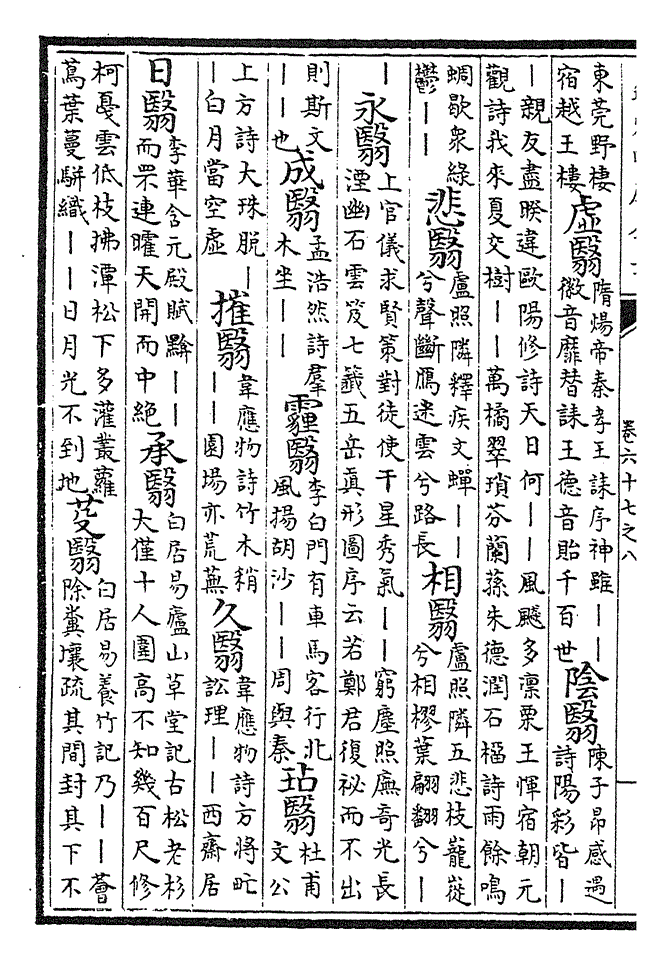 東莞野棲宿越王樓 虛翳 隋煬帝秦孝王誄序神雖——徽音靡替誄王德音貽千百世 陰翳 陳子昂感遇詩陽彩皆—
—親友盡睽違歐陽修詩天日何——風飈多凛栗王惲宿朝元
觀詩我來夏交樹——萬橘翠瑣芬蘭蓀朱德潤石榴詩雨餘鳴
蜩歇衆綠鬱—— 悲翳 盧照隣釋疾文蟬——兮聲斷鴈迷雲兮路長 相翳 盧照隣五悲枝巃嵷兮相樛葉翩翻兮—
— 永翳 上官儀求賢策對徒使干星秀氣——窮塵照廡竒光長湮幽石雲笈七籤五岳真形圖序云若鄭君復祕而不出
則斯文——也 成翳 孟浩然詩羣木坐—— 霾翳 李白門有車馬客行北風揚胡沙——周與秦 玷翳 杜甫文公
上方詩大珠脫——白月當空虛 摧翳 韋應物詩竹木稍——園場亦荒蕪 久翳 韋應物詩方將甿訟理——西齋居
日翳 李華含元殿賦黭——而罘連曜天開而中絶 承翳 白居易廬山草堂記古松老杉大僅十人圍高不知幾百尺修
柯戛雲低枝拂潭松下多灌叢蘿蔦葉蔓駢織——日月光不到地 芟翳 白居易養竹記乃——薈除糞壤疏其間封其下不
卷六十七之八